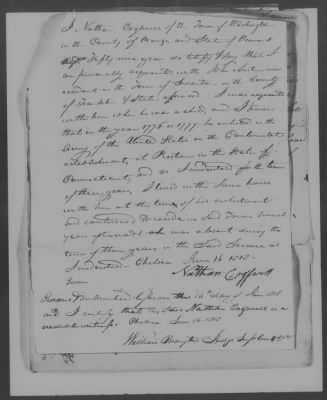 I Nathan Cogswell of the Town of Washington
in the County of Orange and State of Vermont
Fifty nine years do testify & say that I
am personally acquainted with John
resident in the Town of in the County
of Franklin & State aforesaid I was acquainted
with him when he was a child, and I know
that in the year 1776 or 1777 he enlisted in the
Army of the United States on the Continental
establishment, at Preston in the State of
Connecticut, and as I understood for the term
of three years, I lived in the same house
with him at the time of his enlistment
and continued to reside in said Town several
years afterward & he was absent during the
term of three years in the Said Service as
I understood. Chelsea June 16 1818.
Nathan Cogswell
Sworn & subscribed before me this 16th day of June 1818
and I certify that the said Nathan Cogswell is a
credible witness. Chelsea June 16 1818
William Judge